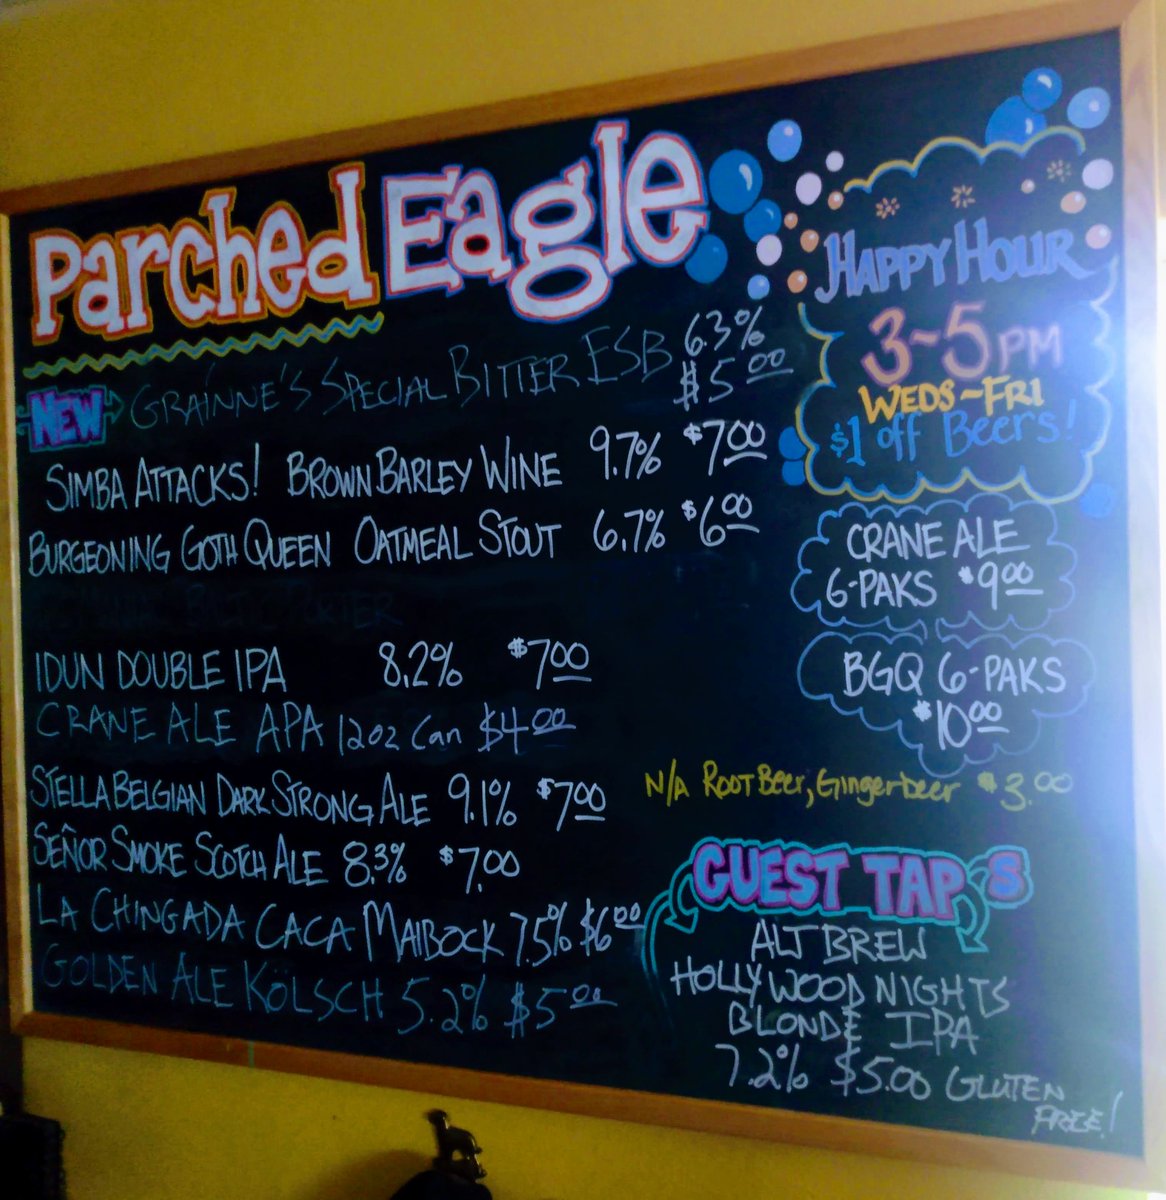 Parched Eagle
NEW GRÁINNE'S SPECIAL BITTER ESB 6.3% $5.00
SIMBA ATTACKS! BROWN BARLEY WINE 9.7% $7.00
BURGEONING GOTH QUEEN OATMEAL STOUT 6.7% $6.00
PORTER
IDUN DOUBLE IPA 8.2% $7.00
CRANE ALE APA 12oz Can $4.00
STELLA BELGIAN DARK STRONG ALE 9.1% $7.00
SEÑOR SMOKE SCOTCH ALE 8.3% $7.00
LA CHINGADA CACA MAIBOCK 7.5% $6.00
GOLDEN ALE KÖLSCH 5.2% $5.00
HAPPY HOUR
3~5PM
WEDS~FRI
$1 off Beers!
CRANE ALE
6-PAKS $9.00
BGQ 6-PAKS
$10.00
N/A ROOT BEER, Gingerbeer $3.00
GUEST TAPS
ALT BREW
HOLLYWOOD NIGHTS
BLONDE IPA
7.2% $5.00 GLUTEN
FREE!